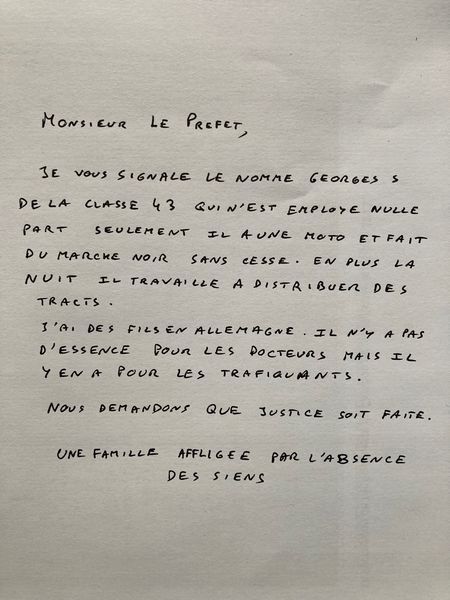 MONSIEUR LE PREFET,
JE VOUS SIGNALE LE NOMME GEORGES S
DE LA CLASSE 43 QUI N'EST EMPLOYE NULLE
PART SEULEMENT IL A UNE MOTO ET FAIT
DU MARCHE NOIR SANS CESSE. EN PLUS LA
NUIT IL TRAVAILLE A DISTRIBUER DES
TRACTS.
J'AI DES FILS EN ALLEMAGNE. IL N'Y A PAS
D'ESSENCE POUR LES DOCTEURS MAIS IL
Y EN A POUR LES TRAFIQUANTS.
NOUS DEMANDONS QUE JUSTICE SOIT FAITE.
UNE FAMILLE AFFLIGEE PAR L'ABSENCE
DES SIENS